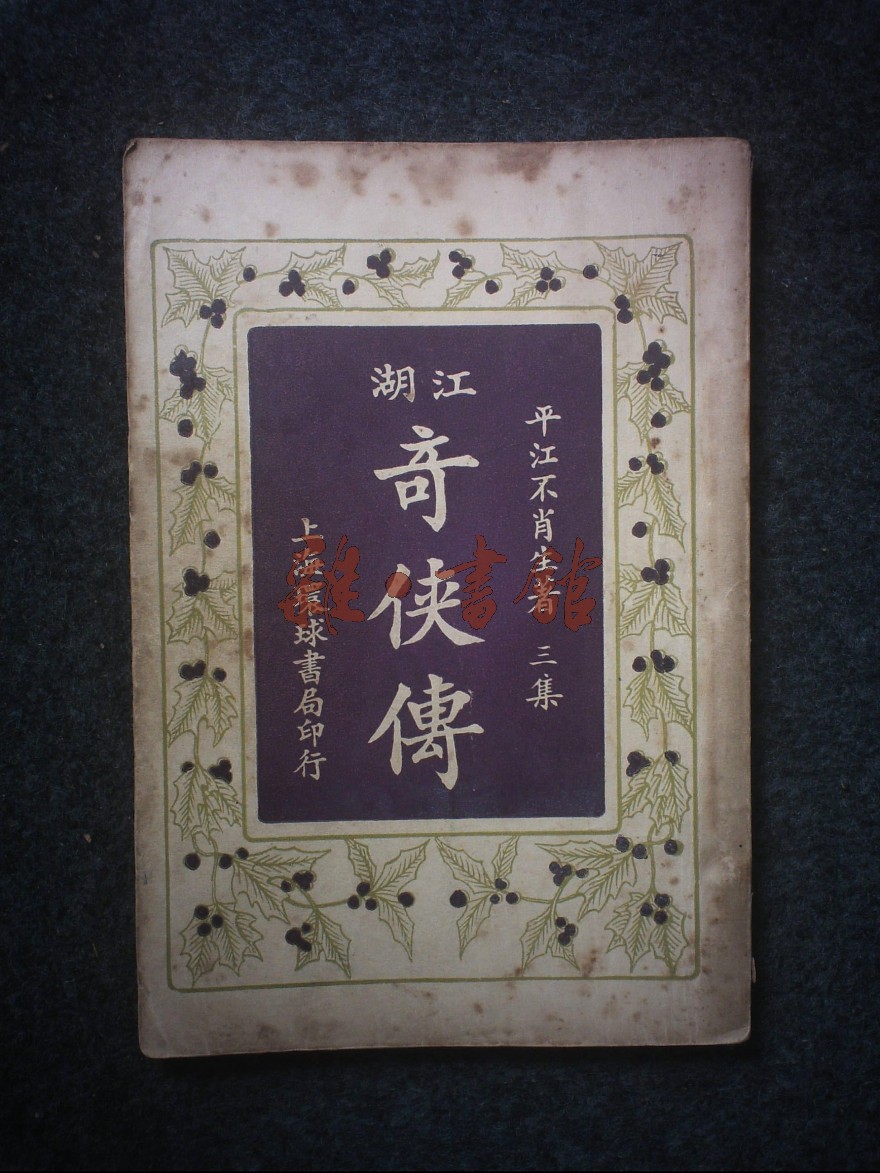 江湖
奇俠傳
平江不肖生著 三集
上海環球書局印行
書館